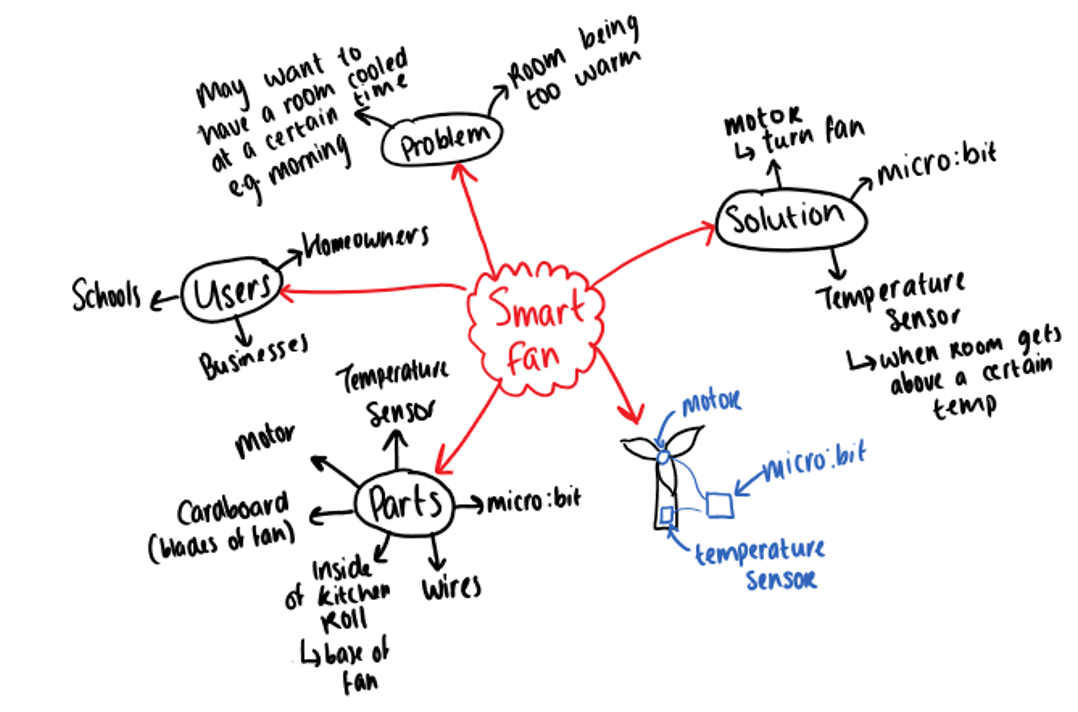 Smart
fan
Problem
May want to
have a room cooled
at a certain time
e.g. morning
Room being
too warm
Solution
motor
↳ turn fan
micro:bit
Temperature
sensor
↳ when room gets
above a certain
temp
Users
Homeowners
Schools
Businesses
Parts
Temperature
sensor
motor
Cardboard
(blades of fan)
Inside
of kitchen
roll
↳ base of
fan
wires
micro:bit
motor
micro:bit
temperature
sensor